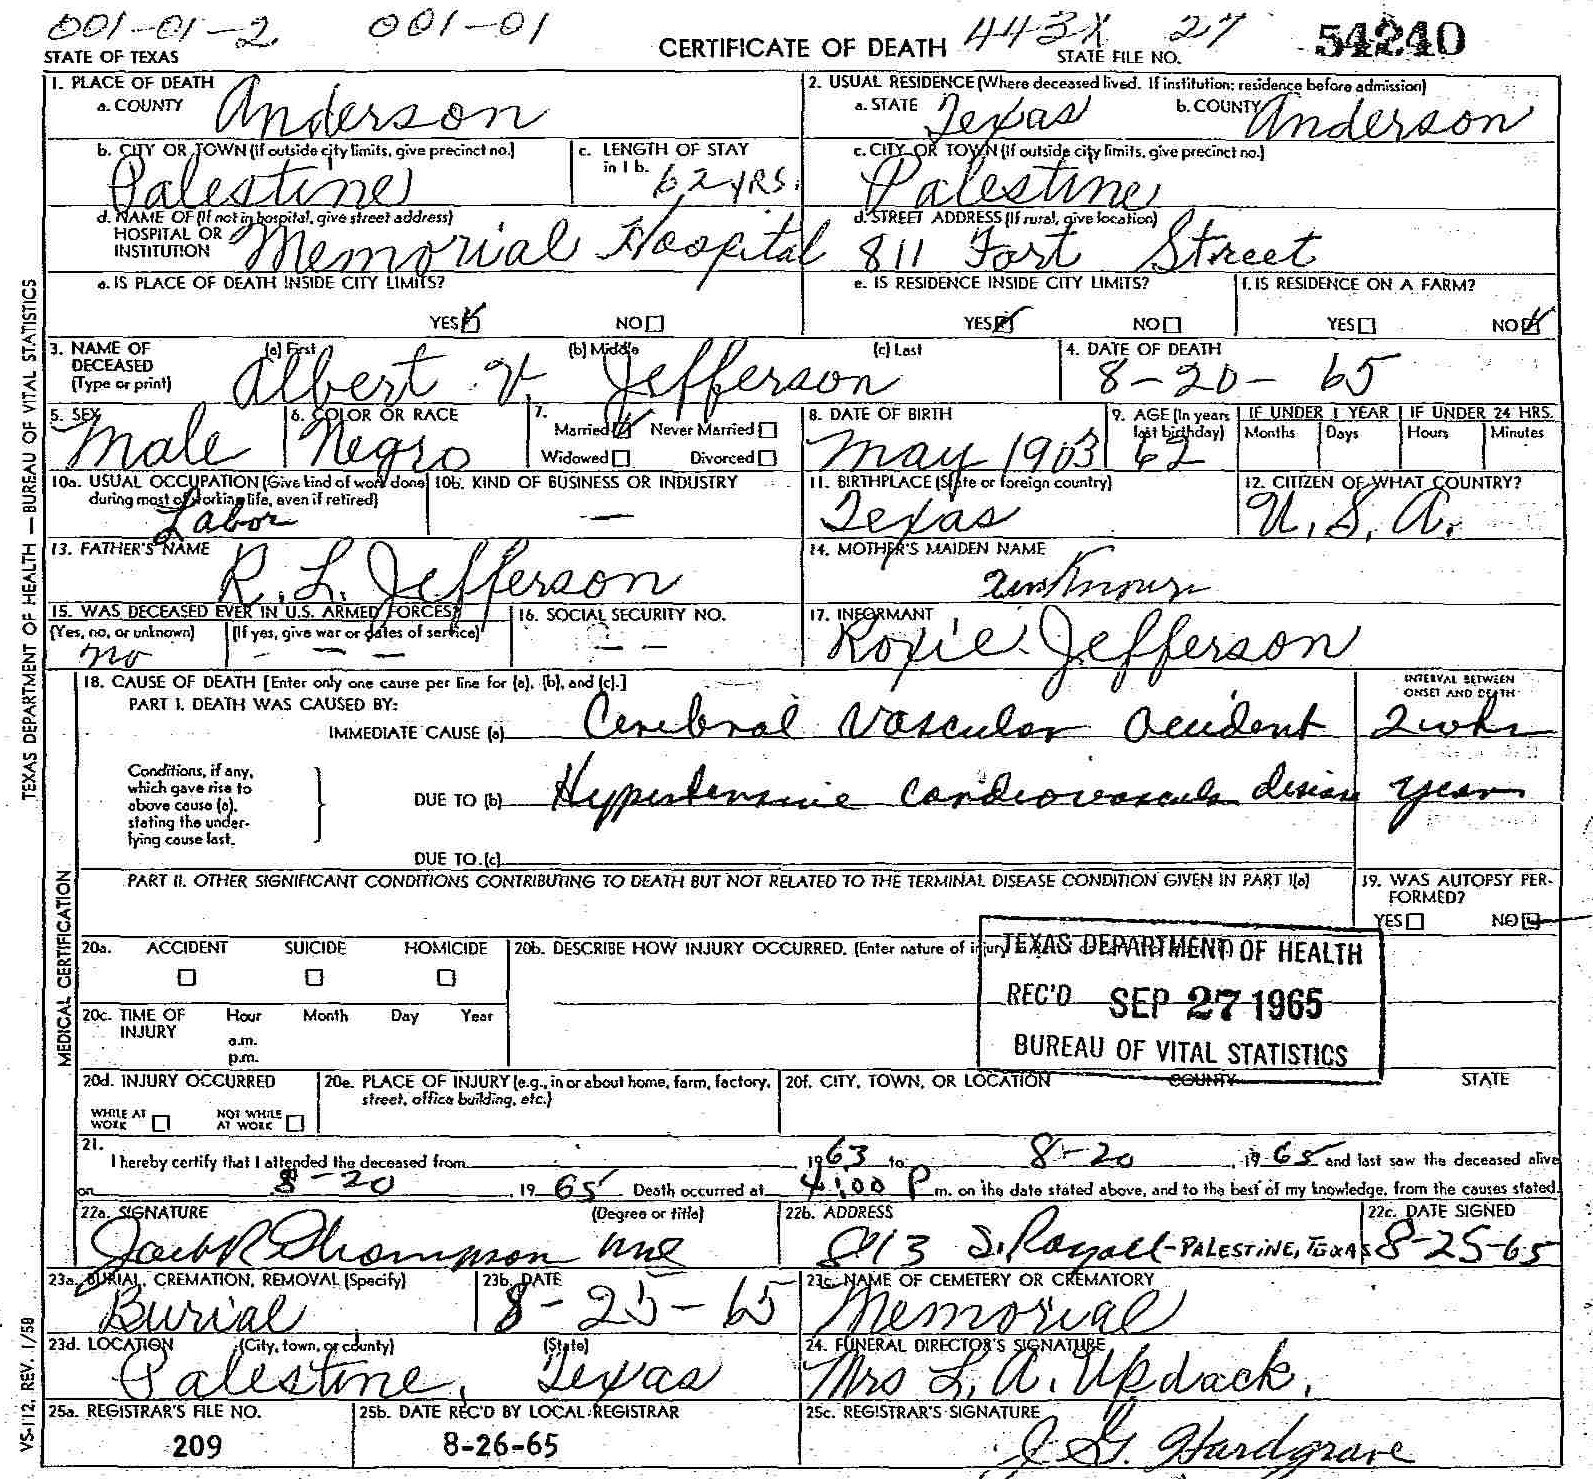 001-01-2 001-01 443X 27 54240
STATE OF TEXAS CERTIFICATE OF DEATH STATE FILE NO.
1. PLACE OF DEATH
a. COUNTY Anderson
2. USUAL RESIDENCE (Where deceased lived. If institution: residence before admission)
a. STATE Texas b. COUNTY Anderson
b. CITY OR TOWN (if outside city limits, give precinct no.) Palestine
c. LENGTH OF STAY in 1 b. 62 YRS.
c. CITY OR TOWN (if outside city limits, give precinct no.) Palestine
d. NAME OF (If not in hospital, give street address) HOSPITAL OR INSTITUTION Memorial Hospital
d. STREET ADDRESS (If rural, give location) 811 Fort Street
e. IS PLACE OF DEATH INSIDE CITY LIMITS?
YES NO
e. IS RESIDENCE INSIDE CITY LIMITS?
YES NO
f. IS RESIDENCE ON A FARM?
YES NO
3. NAME OF DECEASED (Type or print) (a) First (b) Middle (c) Last
Albert V. Jefferson
4. DATE OF DEATH
8-20-65
5. SEX Male
6. COLOR OR RACE Negro
7. Married Never Married
Widowed Divorced
8. DATE OF BIRTH May 1903
9. AGE (In years last birthday) 62
IF UNDER 1 YEAR Months Days
IF UNDER 24 HRS. Hours Minutes
10a. USUAL OCCUPATION (Give kind of work done during most of working life, even if retired) Labor
10b. KIND OF BUSINESS OR INDUSTRY —
11. BIRTHPLACE (State or foreign country) Texas
12. CITIZEN OF WHAT COUNTRY? U.S.A.
13. FATHER'S NAME R. L. Jefferson
14. MOTHER'S MAIDEN NAME unknown
15. WAS DECEASED EVER IN U.S. ARMED FORCES?
(Yes, no, or unknown) no (If yes, give war or dates of service) - - -
16. SOCIAL SECURITY NO. - -
17. INFORMANT Roxie Jefferson
18. CAUSE OF DEATH [Enter only one cause per line for (a), (b), and (c).]
INTERVAL BETWEEN ONSET AND DEATH
PART I. DEATH WAS CAUSED BY:
IMMEDIATE CAUSE (a) Cerebral Vascular Accident 2 wks
Conditions, if any, which gave rise to above cause (a), stating the underlying cause last.
DUE TO (b) Hypertensive cardiovascular disease years
DUE TO (c)
PART II. OTHER SIGNIFICANT CONDITIONS CONTRIBUTING TO DEATH BUT NOT RELATED TO THE TERMINAL DISEASE CONDITION GIVEN IN PART I(a)
19. WAS AUTOPSY PERFORMED?
YES NO
20a. ACCIDENT SUICIDE HOMICIDE
20b. DESCRIBE HOW INJURY OCCURRED. (Enter nature of injury
TEXAS DEPARTMENT OF HEALTH
REC'D SEP 27 1965
BUREAU OF VITAL STATISTICS
20c. TIME OF INJURY Hour Month Day Year
a.m.
p.m.
20d. INJURY OCCURRED
WHILE AT WORK NOT WHILE AT WORK
20e. PLACE OF INJURY (e.g., in or about home, farm, factory, street, office building, etc.)
20f. CITY, TOWN, OR LOCATION COUNTY STATE
21.
I hereby certify that I attended the deceased from 1963 to 8-20, 1965 and last saw the deceased alive
on 8-20, 1965 Death occurred at 4:00 P m. on the date stated above, and to the best of my knowledge, from the causes stated.
22a. SIGNATURE (Degree or title)
Jack R Thompson MD
22b. ADDRESS
813 S. Royall - PALESTINE, TEXAS
22c. DATE SIGNED
8-25-65
23a. BURIAL, CREMATION, REMOVAL (Specify) Burial
23b. DATE 8-25-65
23c. NAME OF CEMETERY OR CREMATORY Memorial
23d. LOCATION (City, town, or county) (State)
Palestine, Texas
24. FUNERAL DIRECTOR'S SIGNATURE
Mrs L. A. Updack.
25a. REGISTRAR'S FILE NO. 209
25b. DATE REC'D BY LOCAL REGISTRAR 8-26-65
25c. REGISTRAR'S SIGNATURE
J G. Hardgrave
TEXAS DEPARTMENT OF HEALTH — BUREAU OF VITAL STATISTICS
MEDICAL CERTIFICATION
VS-112, REV. 1/58